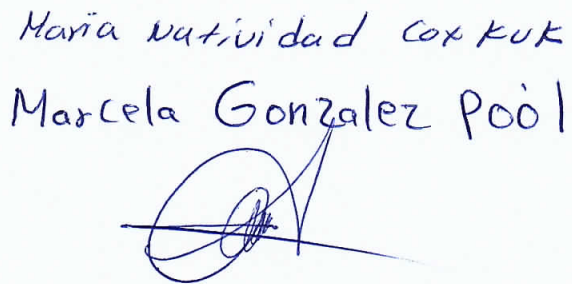 Maria Natividad Cox Kuk
Marcela Gonzalez Poól